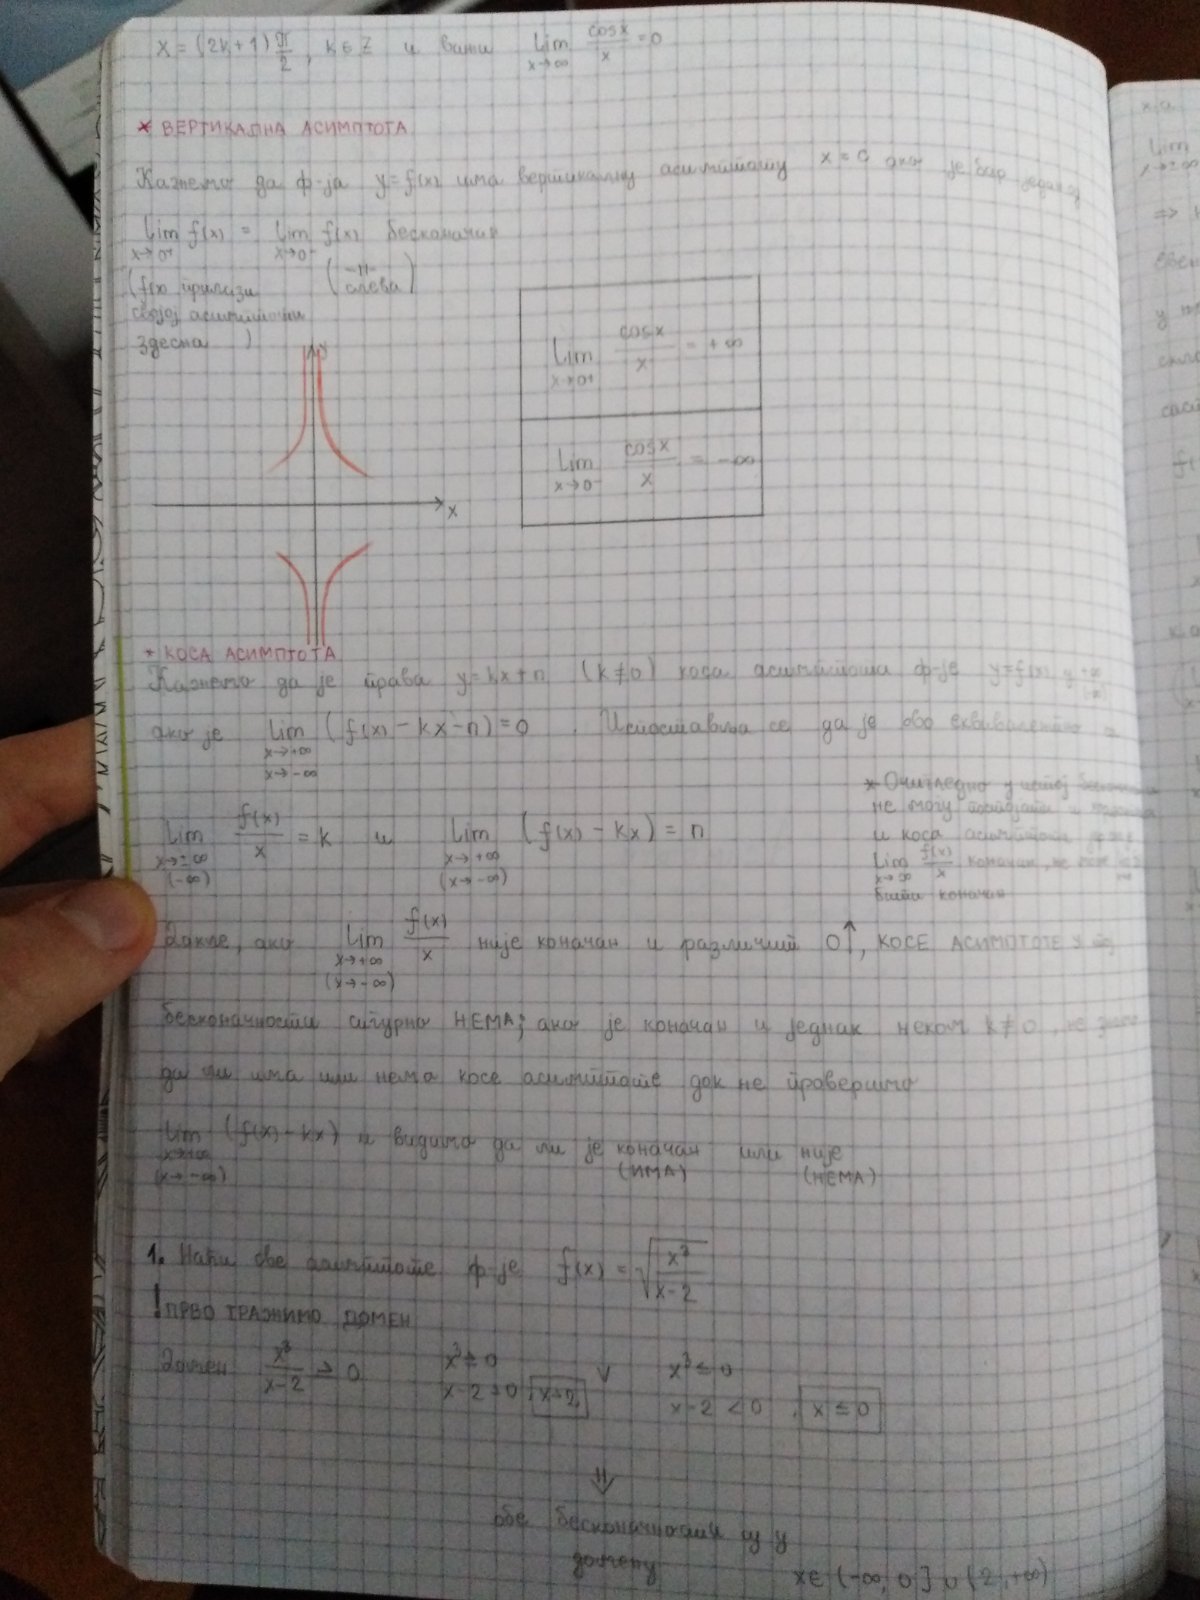 x = (2k+1) π/2, k ∈ Z и важи lim x→∞ cosx/x = 0
* ВЕРТИКАЛНА АСИМПТОТА
Кажемо да ф-ја y=f(x) има вертикалну асимптоту x = 0 ако је бар један од
lim x→0+ f(x) = lim x→0- f(x) бесконачан
(f(x) прилази
својој асимптоти
здесна )
( -||- слева )
y
x
lim x→0+ cosx/x = +∞
lim x→0- cosx/x = -∞
* КОСА АСИМПТОТА
Кажемо да је права y=kx+n (k≠0) коса асимптота ф-је y=f(x) у +∞ (-∞)
ако је lim x→+∞ x→-∞ (f(x) - kx - n) = 0. Испоставља се да је ово еквивалентно с
lim x→±∞ (-∞) f(x)/x = k и lim x→+∞ (x→-∞) (f(x) - kx) = n
* Очигледно у истој
не могу постојати и
и коса асимптота
lim x→∞ f(x)/x коначан, не може
бити коначан
Дакле, ако lim x→+∞ (x→-∞) f(x)/x није коначан и различит 0↑, КОСЕ АСИМПТОТЕ у тој
бесконачности сигурно НЕМА; ако је коначан и једнак неком k≠0, не знамо
да ли има или нема косе асимптоте док не проверимо
lim x→+∞ (x→-∞) (f(x) - kx) и видимо да ли је коначан (ИМА) или није (НЕМА)
1. Наћи све асимптоте ф-је f(x) = √(x³/(x-2))
! ПРВО ТРАЖИМО ДОМЕН
Домен x³/(x-2) ≥ 0
x³ ≥ 0 ∨ x³ ≤ 0
x-2 > 0, x>2 x-2 < 0, x ≤ 0
⇓
обе бесконачности су у
домену
x∈ (-∞, 0] ∪ (2, +∞)
lim
x→±∞